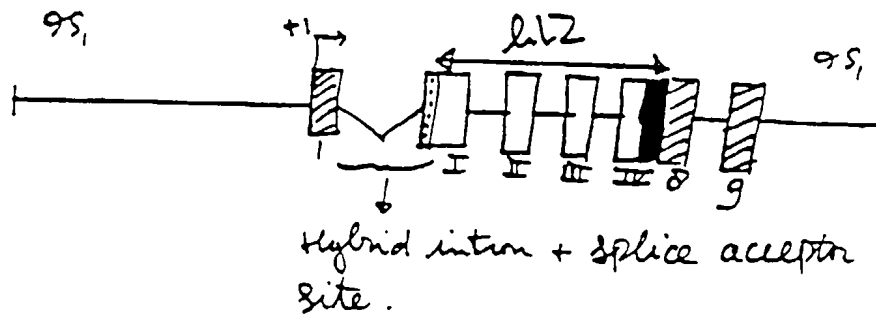 αS₁ +1 αS₁
1 I II III IV 8 9
Hybrid intron + splice acceptor
site.